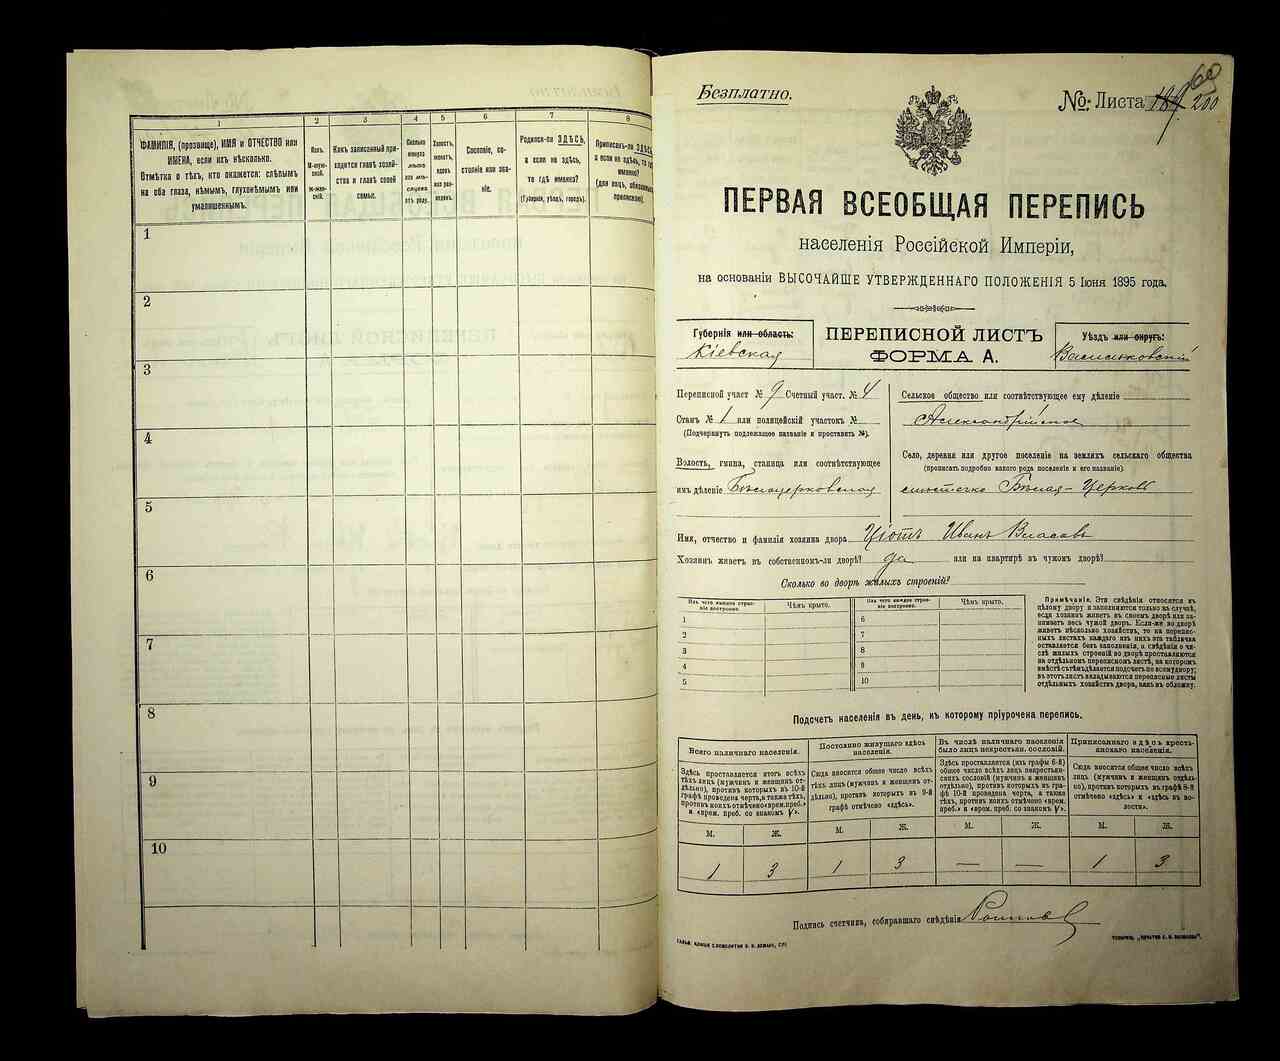 1
2
3
4
5
6
7
8
ФАМИЛІЯ, (прозвище), ИМЯ и ОТЧЕСТВО или
ИМЕНА, если ихъ нѣсколько.
Отмѣтка о тѣхъ, кто окажется: слѣпымъ
на оба глаза, нѣмымъ, глухонѣмымъ или
умалишеннымъ.
Полъ.
М-мужской.
Ж-женскій.
Какъ записанный приходится главѣ хозяйства и главѣ своей семьи.
Сколько минуло лѣтъ или мѣсяцевъ отъ роду.
Холостъ, женатъ, вдовъ или разведенъ.
Сословіе, состояніе или званіе.
Родился-ли ЗДѢСЬ,
а если не здѣсь,
то гдѣ именно?
(Губернія, уѣздъ, городъ).
Приписанъ-ли ЗДѢСЬ,
а если не здѣсь, то гдѣ
именно?
(для лицъ, обязанныхъ
припиской).
1
2
3
4
5
6
7
8
9
10
Безплатно.
60
№: Листа 189 200
ПЕРВАЯ ВСЕОБЩАЯ ПЕРЕПИСЬ
населенія Россійской Имперіи,
на основаніи ВЫСОЧАЙШЕ УТВЕРЖДЕННАГО ПОЛОЖЕНІЯ 5 Іюня 1895 года.
Губернія или область:
Кіевская
ПЕРЕПИСНОЙ ЛИСТЪ
ФОРМА А.
Уѣздъ или округъ:
Васильковскій
Переписной участ № 9 Счетный участ. № 4
Станъ № 1 или полицейскій участокъ №
(Подчеркнуть подлежащее названіе и проставить №).
Волость, гмина, станица или соотвѣтствующее
имъ дѣленіе Бѣлоцерковская
Сельское общество или соотвѣтствующее ему дѣленіе
Александрійское
Село, деревня или другое поселеніе на земляхъ сельскаго общества
(прописать подробно какого рода поселеніе и его названіе).
мѣстечко Бѣлая-Церковь
Имя, отчество и фамилія хозяина двора Иванъ Власовъ
Хозяинъ живетъ въ собственномъ-ли дворѣ? да или на квартирѣ въ чужомъ дворѣ?
Сколько во дворѣ жилыхъ строеній?
Изъ чего каждое строеніе построено.
Чѣмъ крыто.
Изъ чего каждое строеніе построено.
Чѣмъ крыто.
1
2
3
4
5
6
7
8
9
10
Примѣчаніе. Эти свѣдѣнія относятся къ
цѣлому двору и заполняются только въ случаѣ,
если хозяинъ живетъ въ своемъ дворѣ или занимаетъ весь чужой дворъ. Если-же во дворѣ
живетъ нѣсколько хозяйствъ, то на переписныхъ листахъ каждаго изъ нихъ эта табличка
оставляется безъ заполненія, а свѣдѣнія о числѣ жилыхъ строеній во дворѣ проставляются
на отдѣльномъ переписномъ листѣ, на которомъ
вмѣстѣ съ тѣмъ дѣлается подсчетъ по всему двору;
въ этотъ листъ вкладываются переписные листы
отдѣльныхъ хозяйствъ двора, какъ въ обложку.
Подсчетъ населенія въ день, къ которому пріурочена перепись.
Всего наличнаго населенія.
Постоянно живущаго здѣсь населенія.
Въ числѣ наличнаго населенія было лицъ некрестьян. сословій.
Приписаннаго здѣсь крестьянскаго населенія.
Здѣсь проставляется итогъ всѣхъ
тѣхъ лицъ (мужчинъ и женщинъ отдѣльно), противъ которыхъ въ 10-й
графѣ проведена черта, а также тѣхъ,
противъ коихъ отмѣчено «врем. преб.»
и «врем. преб. со знакомъ V».
Сюда вносится общее число всѣхъ
тѣхъ лицъ (мужчинъ и женщинъ отдѣльно), противъ которыхъ въ 9-й
графѣ отмѣчено «здѣсь».
Здѣсь проставляется (изъ графы 6-й)
общее число всѣхъ лицъ некрестьянскихъ сословій (мужчинъ и женщинъ
отдѣльно), противъ которыхъ въ графѣ 10-й проведена черта, а также
тѣхъ, противъ коихъ отмѣчено «врем.
преб.» и «врем. преб. со знакомъ V».
Сюда вносится общее число всѣхъ
лицъ (мужчинъ и женщинъ отдѣльно), противъ которыхъ въ графѣ 8-й
отмѣчено «здѣсь» и «здѣсь въ волости».
М. Ж. М. Ж. М. Ж. М. Ж.
1 3 1 3 — — 1 3
Подпись счетчика, собиравшаго свѣдѣнія